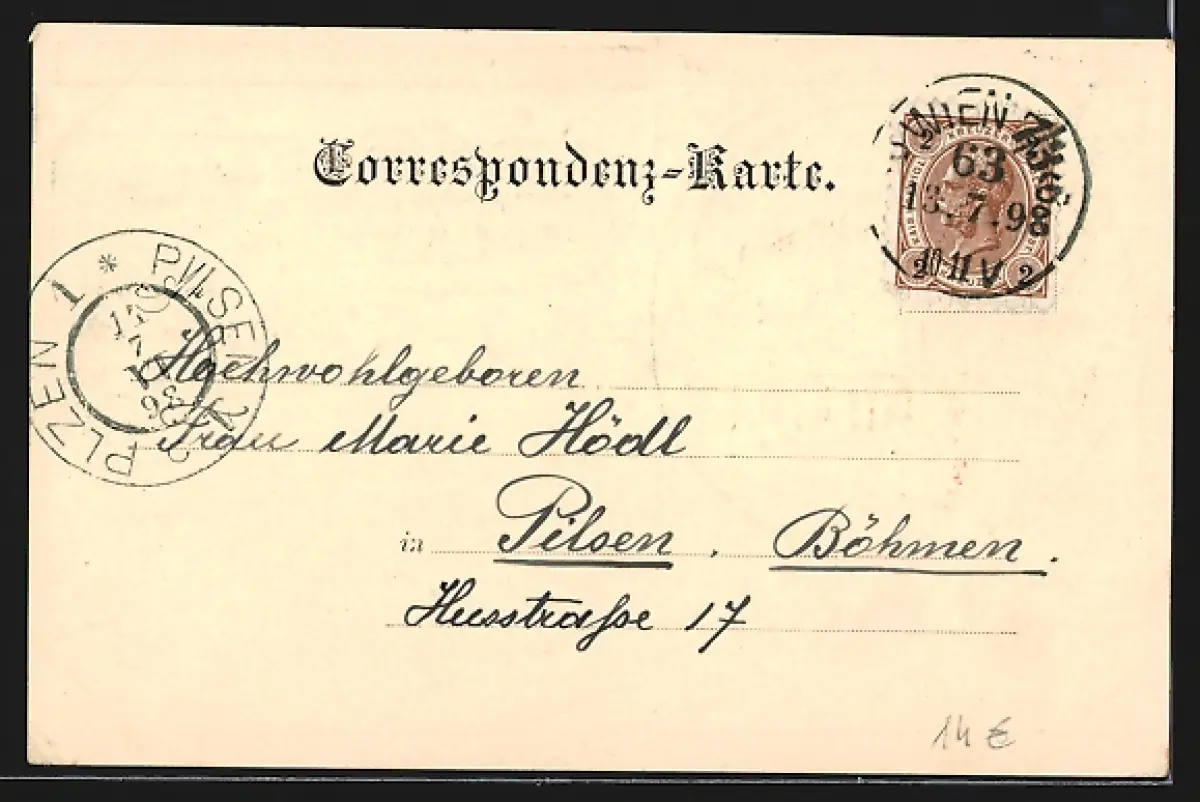 Correspondenz-Karte.
WIEN
63
13.7.98
10-11 V
2 KREUZER
2 2
PILSEN 2
PLZEN 1 *
17
7
98
Hochwohlgeboren
Frau Marie Hödl
in Pilsen. Böhmen.
Husstraße 17
14 €